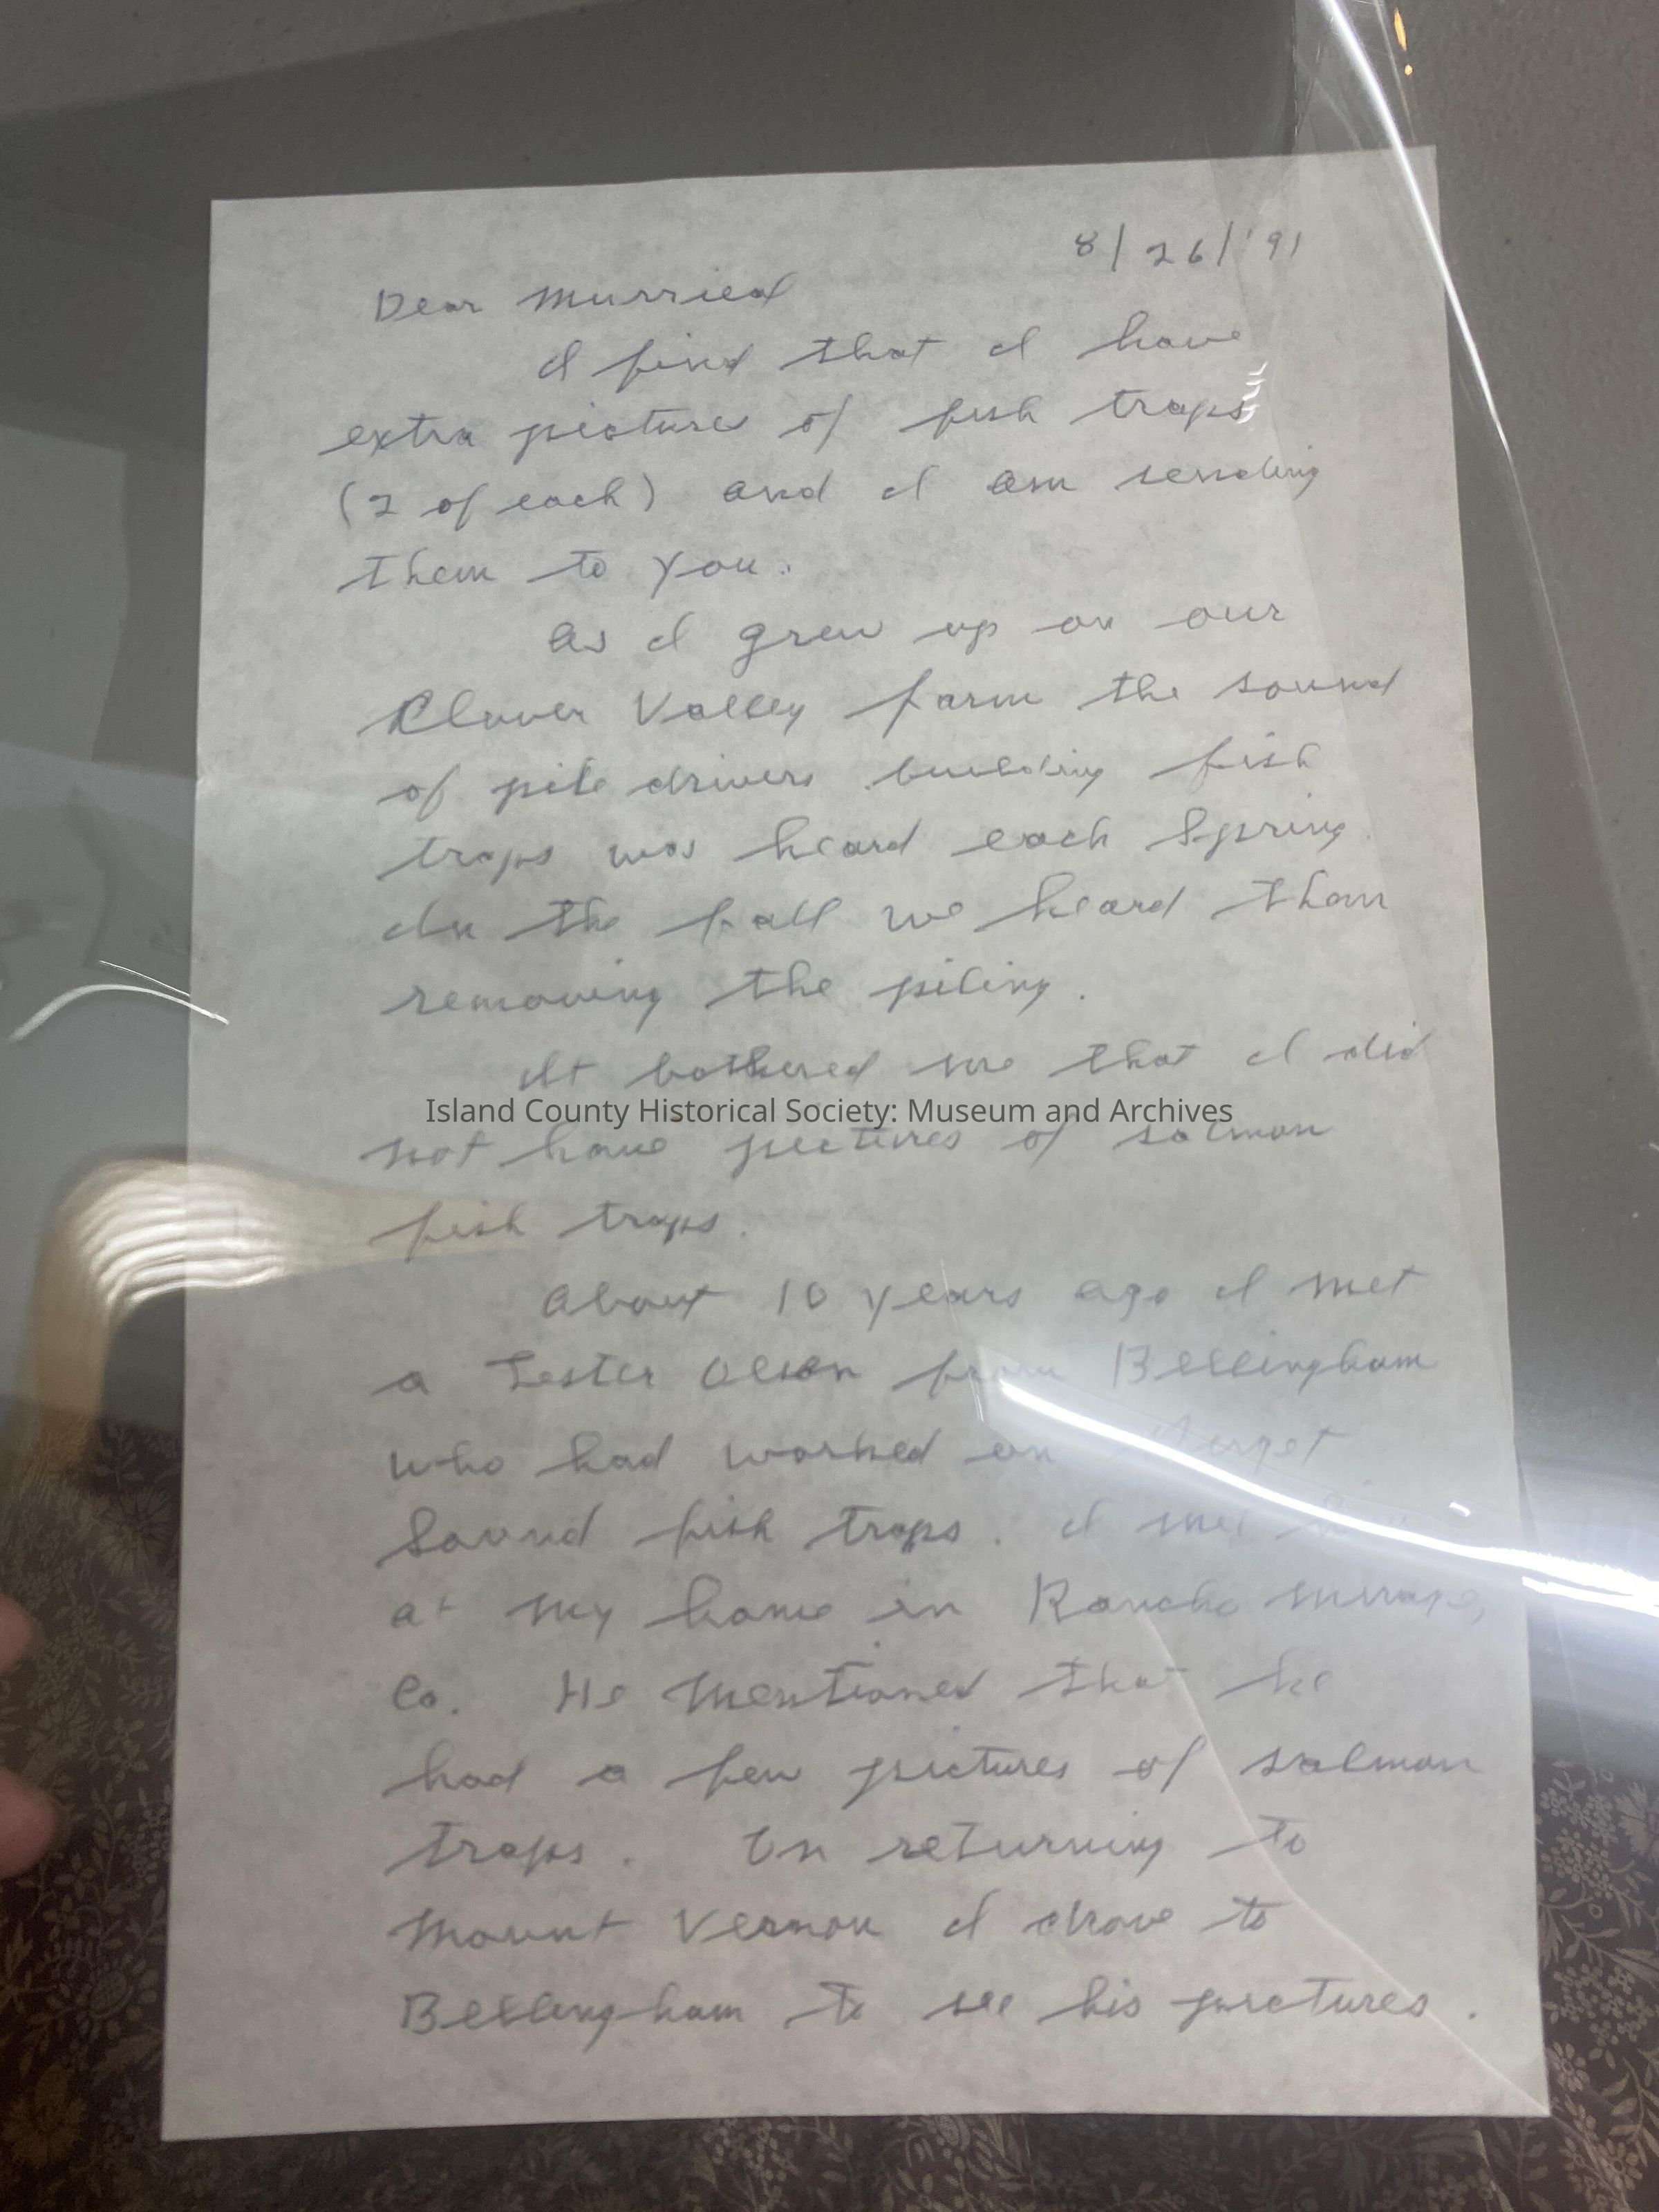 8/26/'91
Dear Murriel
I find that I have
extra pictures of fish traps
(2 of each) and I am sending
them to you.
As I grew up on our
Clover Valley farm the sound
of pile drivers building fish
traps was heard each Spring.
In the fall we heard them
removing the piling.
It bothered me that I did
Island County Historical Society: Museum and Archives
not have pictures of salmon
fish traps.
About 10 years ago I met
a Lester Olson from Bellingham
who had worked on Puget
Sound fish traps. I met him
at my home in Rancho Mirage,
Ca. He mentioned that he
had a few pictures of salmon
traps. On returning to
Mount Vernon I drove to
Bellingham to see his pictures.